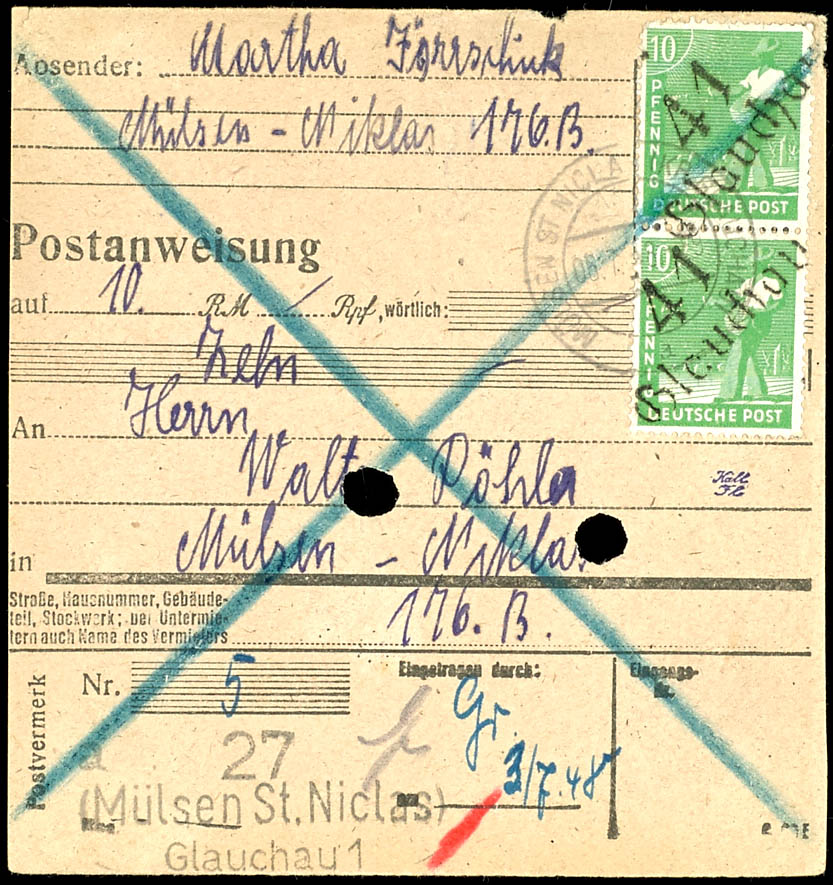 Absender: Martha
Mülsen - Niklas 176.B.
10
PFENNIG
DEUTSCHE POST
41
Glauchau
10
PFENNIG
DEUTSCHE POST
41
Glauchau
Postanweisung
auf 10. RM / Rpf, wörtlich:
Zehn
An Herrn
Walt Röhler
Kall
in Mülsen - Niklas
Straße, Hausnummer, Gebäude-
teil, Stockwerk; bei Untermie-
tern auch Name des Vermieters
176. B.
Postvermerk
Nr. 5
Eingetragen durch:
Gr.
Eingangs-
Nr.
am 3/7.48
a 27
(Mülsen St. Niclas)
Glauchau 1